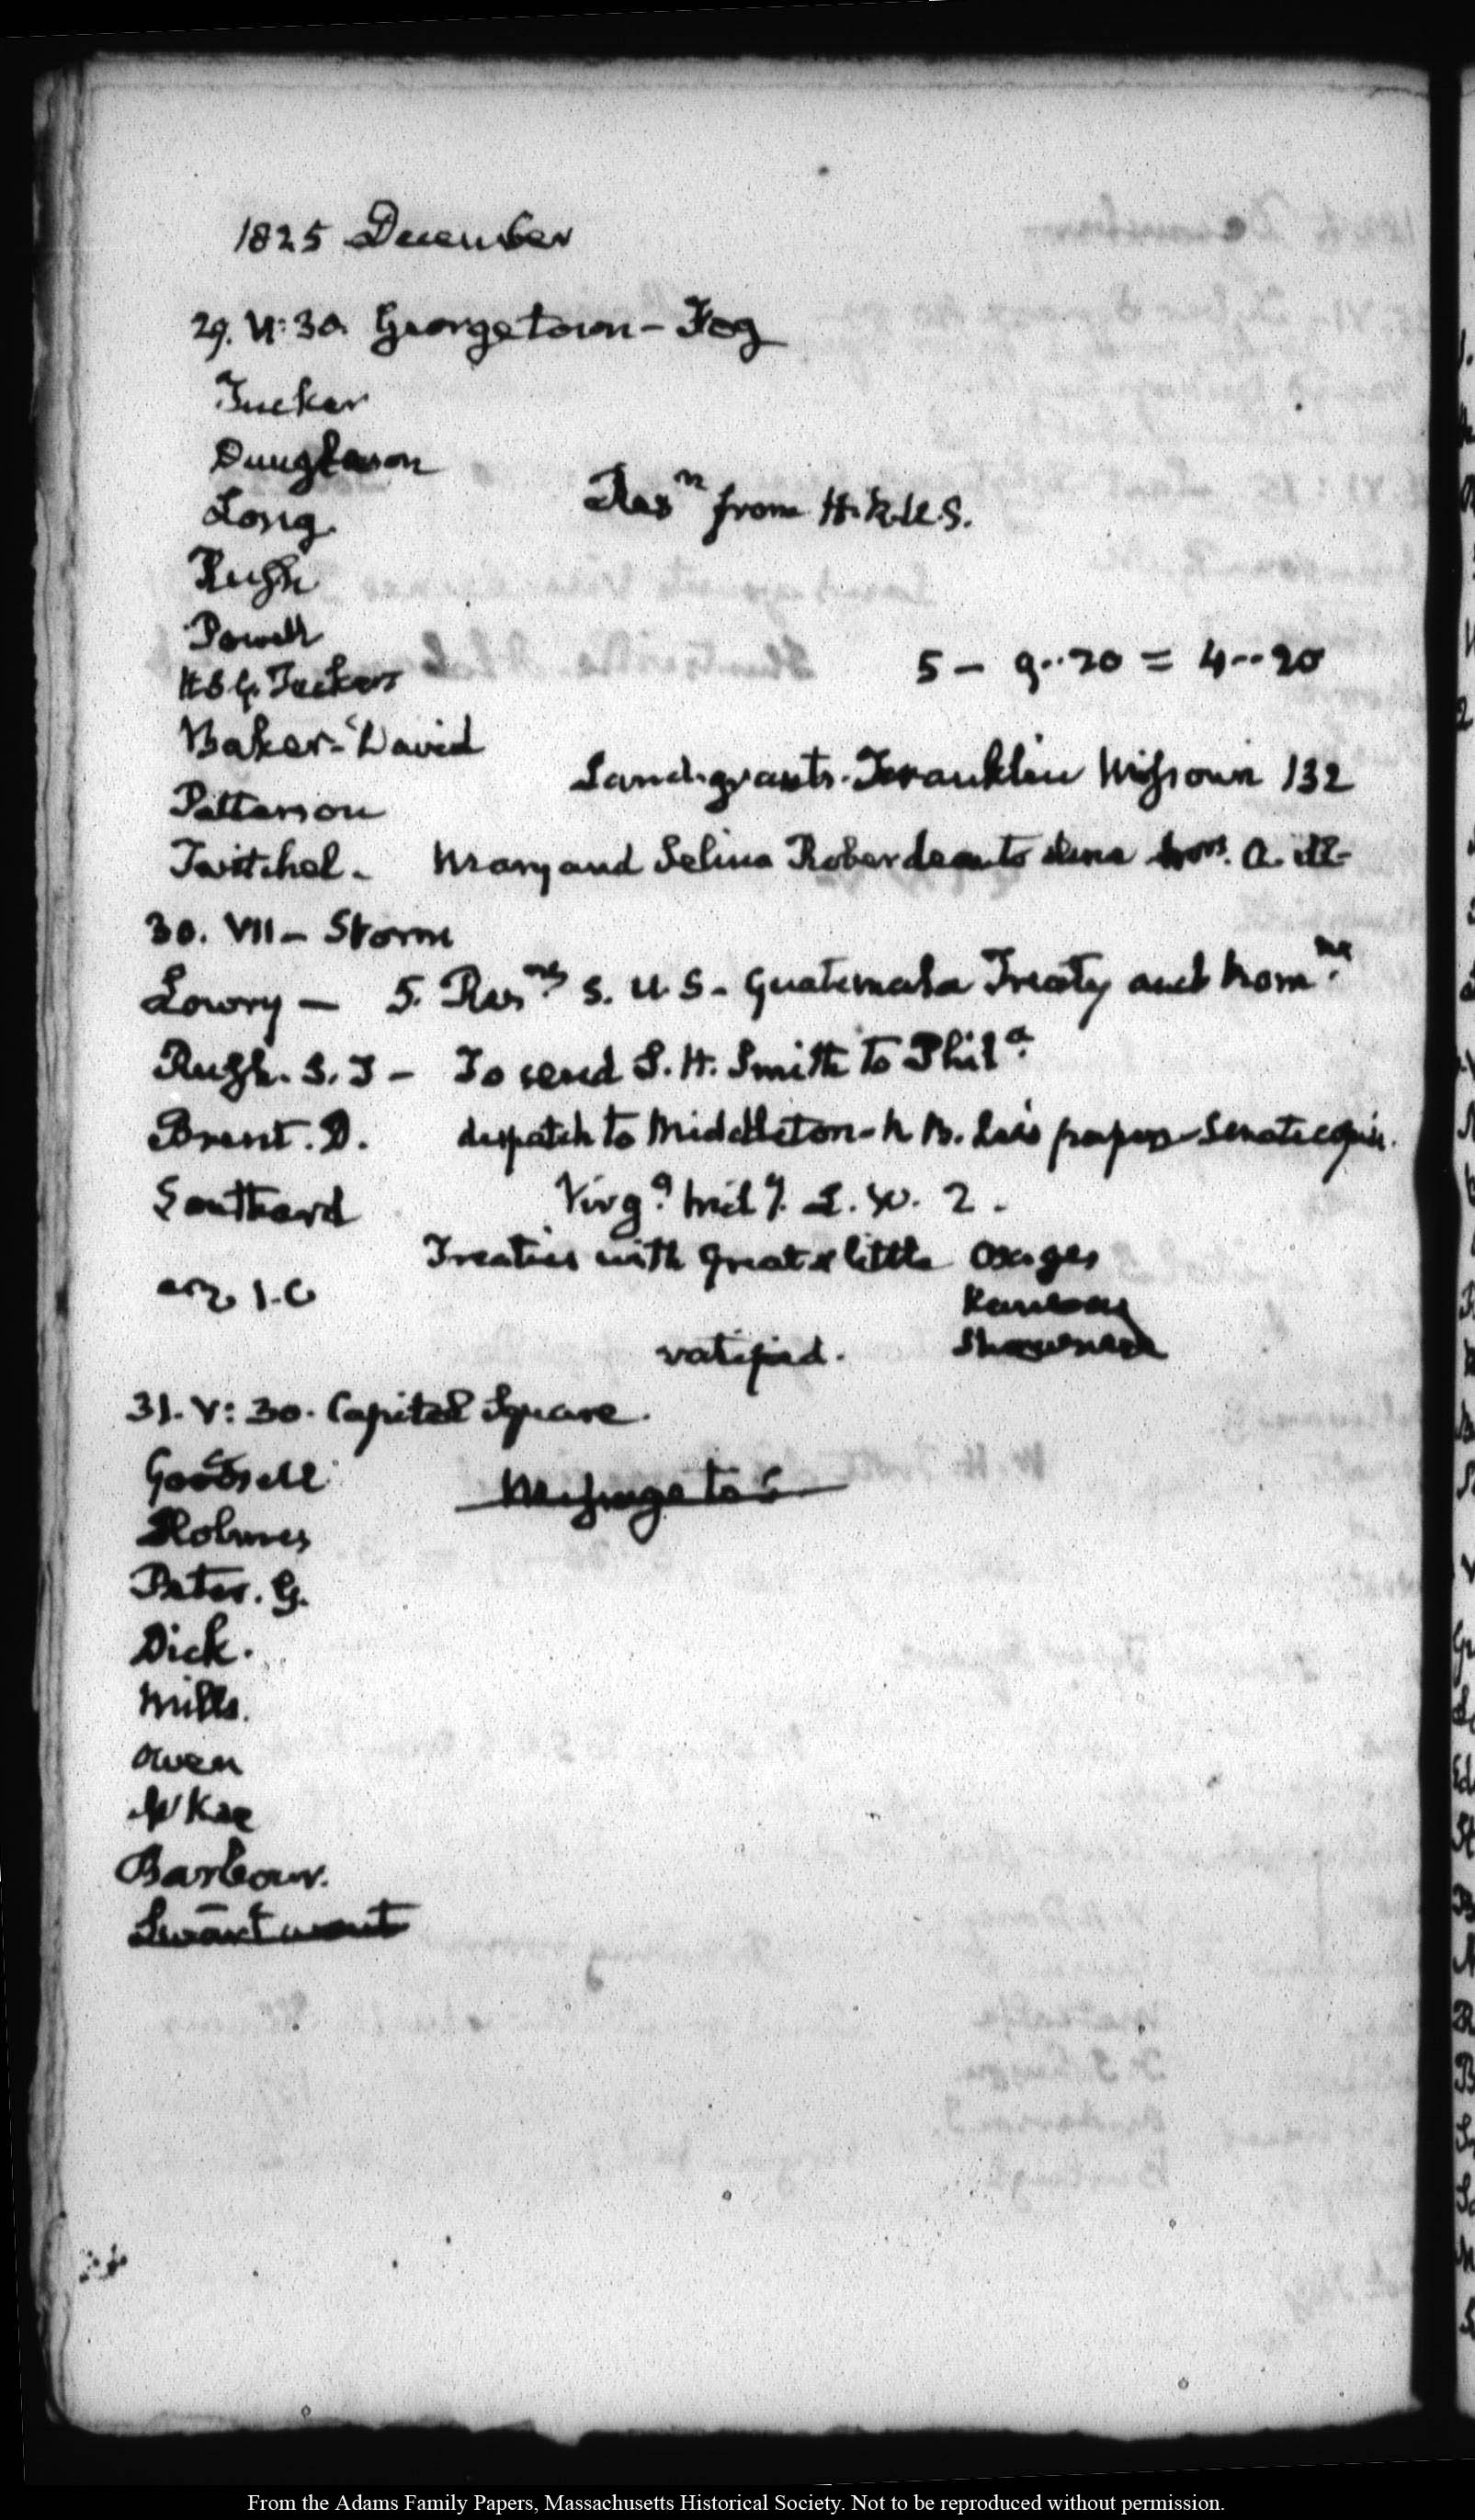 1825 December
29. V: 30. Georgetown - Fog
Tucker
Dunglison
Long.
Resn from H.R.U.S.
Rush
Powell
H. S. G. Tucker
5 - 9..20 = 4..20
Baker - David
Land-grants. Franklin Missouri 132
Patterson
Twitchel - Mary and Selina Roberdeau to dine
30. VII - Storm
Lowry - 5. Resns S. U. S - Guatemala Treaty and Nomns.
Rush. S. T - To send S. H. Smith to Phila.
Brent. D. despatch to Middleton - papers - Senate copies.
Southard Virga. Mily. L. W. 2.
Treaties with Great & little Osages
Kanzas
Shawnees
ratified.
31. V: 30. Capitol Square.
Goodsell Message to S
Holmes
Peter. G.
Dick.
Mills.
Owen
McKee
Barbour.
Swartwout
From the Adams Family Papers, Massachusetts Historical Society. Not to be reproduced without permission.